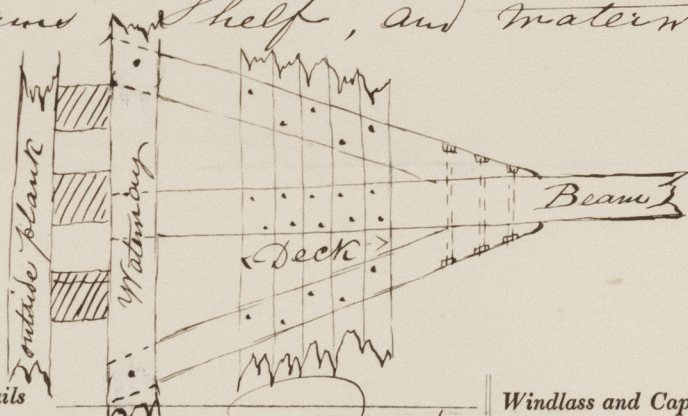 Shelf, and
outside plank
Waterway
Deck
Beam
ils
Windlass and Cap